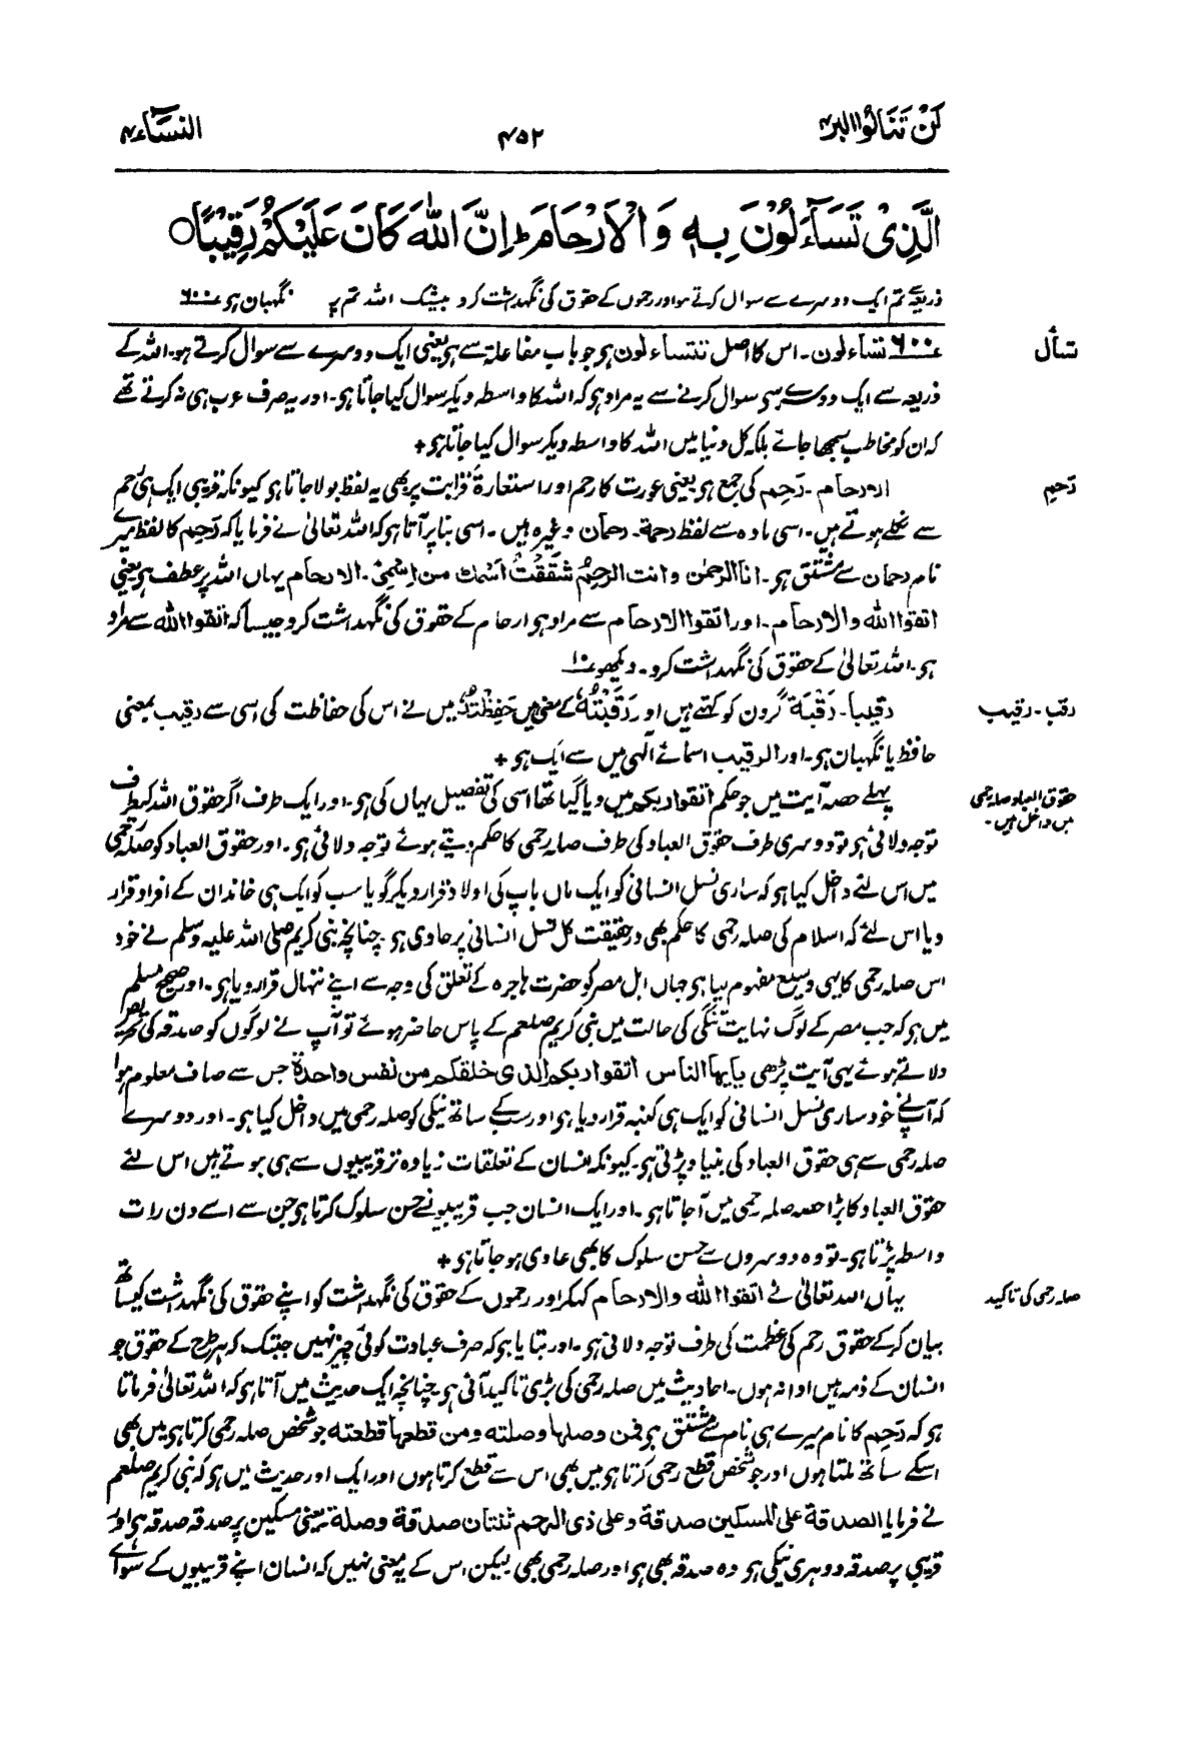 لَنْ تَنَالُوا البر۴
۴۵۲
النسآء۴
الَّذِیْ تَسَآءَلُوْنَ بِہٖ وَالْاَرْحَامَ ؕ اِنَّ اللّٰہَ کَانَ عَلَیْکُمْ رَقِیْبًا○
ذریعے تم ایک دوسرے سے سوال کرتے ہو اور رحموں کے حقوق کی نگہداشت کرو بیشک اللہ تم پر نگہبان ہو ۶۰۰
سأل
۶۰۰ تساءلون۔ اس کا اصل تتساءلون ہو جو باب مفاعلۃ سے ہو یعنی ایک دوسرے سے سوال کرتے ہو۔ اللہ کے
ذریعہ سے ایک دوسرے سے سوال کرنے سے یہ مراد ہو کہ اللہ کا واسطہ دیکر سوال کیا جاتا ہو۔ اور یہ صرف عرب ہی نہ کرتے تھے
کہ ان کو مخاطب سمجھا جائے بلکہ کل دنیا میں اللہ کا واسطہ دیکر سوال کیا جاتا ہو +
رَحِم
الارحام۔ رَحِم کی جمع ہو یعنی عورت کا رحم اور استعارۃً قرابت پر بھی یہ لفظ بولا جاتا ہو کیونکہ قریبی ایک ہی رحم
سے نکلے ہوتے ہیں۔ اسی مادہ سے لفظ رحمۃ۔ رحمان وغیرہ ہیں۔ اسی بنا پر آتا ہو کہ اللہ تعالیٰ نے فرمایا کہ رَحِم کا لفظ میرے
نام رحمان سے مشتق ہو۔ انا الرحمٰن وانت الرحِمُ شَقَقْتُ اسمك من اِسْمِیْ۔ الارحام یہاں اللہ پر عطف ہو یعنی
اتقوا اللہ والارحام۔ اور اتقوا الارحام سے مراد ہو ارحام کے حقوق کی نگہداشت کرو جیسا کہ اتقوا اللہ سے مراد
ہو۔ اللہ تعالیٰ کے حقوق کی نگہداشت کرو۔ دیکھو
رقب۔ رقیب
رقیبا۔ رَقْبَۃ گردن کو کہتے ہیں اور رَقَبْتُہٗ کے معنی ہیں حَفِظْتُہٗ میں نے اس کی حفاظت کی اسی سے رقیب بمعنی
حافظ یا نگہبان ہو۔ اور الرقیب اسمائے الٰہی میں سے ایک ہو +
حقوق العباد صلہ رحمی
میں داخل ہیں۔
پہلے حصہ آیت میں جو حکم اتقوا ربکم میں دیا گیا تھا اسی کی تفصیل یہاں کی ہو۔ اور ایک طرف اگر حقوق اللہ کیطرف
توجہ دلائی ہو تو دوسری طرف حقوق العباد کی طرف صلہ رحمی کا حکم دیتے ہوئے توجہ دلائی ہو۔ اور حقوق العباد کو صلہ رحمی
میں اس لئے داخل کیا ہو کہ ساری نسل انسانی کو ایک ماں باپ کی اولاد قرار دیکر گویا سب کو ایک ہی خاندان کے افراد قرار
دیا اس لئے کہ اسلام کی صلہ رحمی کا حکم بھی درحقیقت کل نسل انسانی پر حاوی ہو چنانچہ نبی کریم صلی اللہ علیہ وسلم نے خود
اس صلہ رحمی کا یہی وسیع مفہوم لیا ہو جہاں اہل مصر کو حضرت ہاجرہ کے تعلق کی وجہ سے اپنے ننہال قرار دیا ہو۔ اور صحیح مسلم
میں ہو کہ جب مصر کے لوگ نہایت تنگی کی حالت میں نبی کریم صلعم کے پاس حاضر ہوئے تو آپ نے لوگوں کو صدقہ کی تحریص
دلاتے ہوئے یہی آیت پڑھی یایہا الناس اتقوا ربکم الذی خلقکم من نفس واحدۃ جس سے صاف معلوم ہوا
کہ آپ نے خود ساری نسل انسانی کو ایک ہی کنبہ قرار دیا ہو اور سب کے ساتھ نیکی کو صلہ رحمی میں داخل کیا ہو۔ اور دوسرے
صلہ رحمی سے ہی حقوق العباد کی بنیاد پڑتی ہو۔ کیونکہ انسان کے تعلقات زیادہ تر قریبیوں سے ہی ہوتے ہیں اس لئے
حقوق العباد کا بڑا حصہ صلہ رحمی میں آ جاتا ہو۔ اور ایک انسان جب قریبیوں سے حسن سلوک کرتا ہو جن سے اسے دن رات
واسطہ پڑتا ہو۔ تو وہ دوسروں سے حسن سلوک کا بھی عادی ہو جاتا ہو +
صلہ رحمی کی تاکید
یہاں اللہ تعالیٰ نے اتقوا اللہ والارحام کہکر اور رحموں کے حقوق کی نگہداشت کو اپنے حقوق کی نگہداشت کیساتھ
بیان کر کے حقوق رحم کی عظمت کی طرف توجہ دلائی ہو۔ اور بتایا ہو کہ صرف عبادت کوئی چیز نہیں جبتک کہ ہر طرح کے حقوق جو
انسان کے ذمہ ہیں ادا نہ ہوں۔ احادیث میں صلہ رحمی کی بڑی تاکید آئی ہو۔ چنانچہ ایک حدیث میں آتا ہو کہ اللہ تعالیٰ فرماتا
ہو کہ رَحِم کا نام میرے ہی نام سے مشتق ہو فمن وصلہا وصلتہ ومن قطعہا قطعتہ جو شخص صلہ رحمی کرتا ہو میں بھی
اسکے ساتھ ملتا ہوں اور جو شخص قطع رحمی کرتا ہو میں بھی اس سے قطع کرتا ہوں اور ایک اور حدیث میں ہو کہ نبی کریم صلعم
نے فرمایا الصدقۃ علی المسکین صدقۃ وعلی ذی الرحم ثنتان صدقۃ وصلۃ یعنی مسکین پر صدقہ صدقہ ہو اور
قریبی پر صدقہ دوہری نیکی ہو وہ صدقہ بھی ہو اور صلہ رحمی بھی لیکن اس کے یہ معنی نہیں کہ انسان اپنے قریبیوں کے سوائے